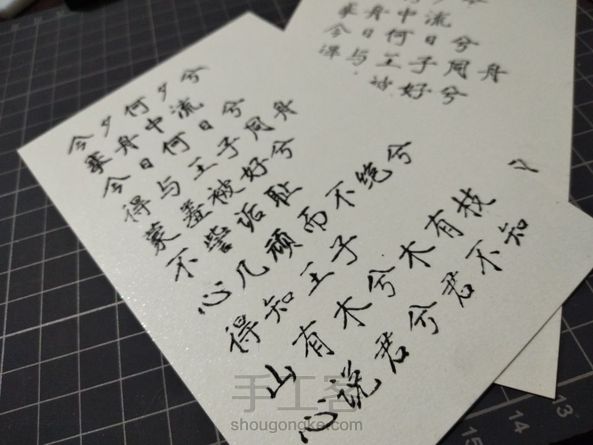 今夕何夕兮
搴舟中流
今日何日兮
得与王子同舟
蒙羞被好兮
不訾诟耻
心几顽而不绝兮
得知王子
山有木兮木有枝
心说君兮君不知
舟中流
今日何日兮
得与王子同舟
好兮
13
14
15
手工客
shougongke.com